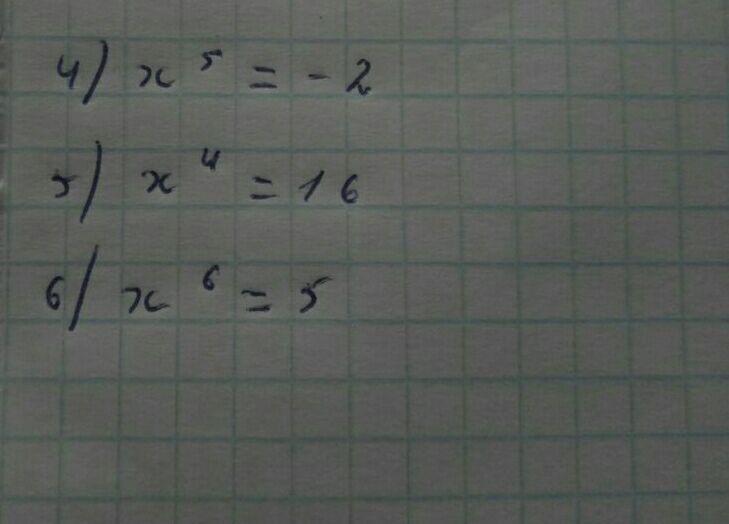 4) x⁵ = -2
5) x⁴ = 16
6) x⁶ = 5